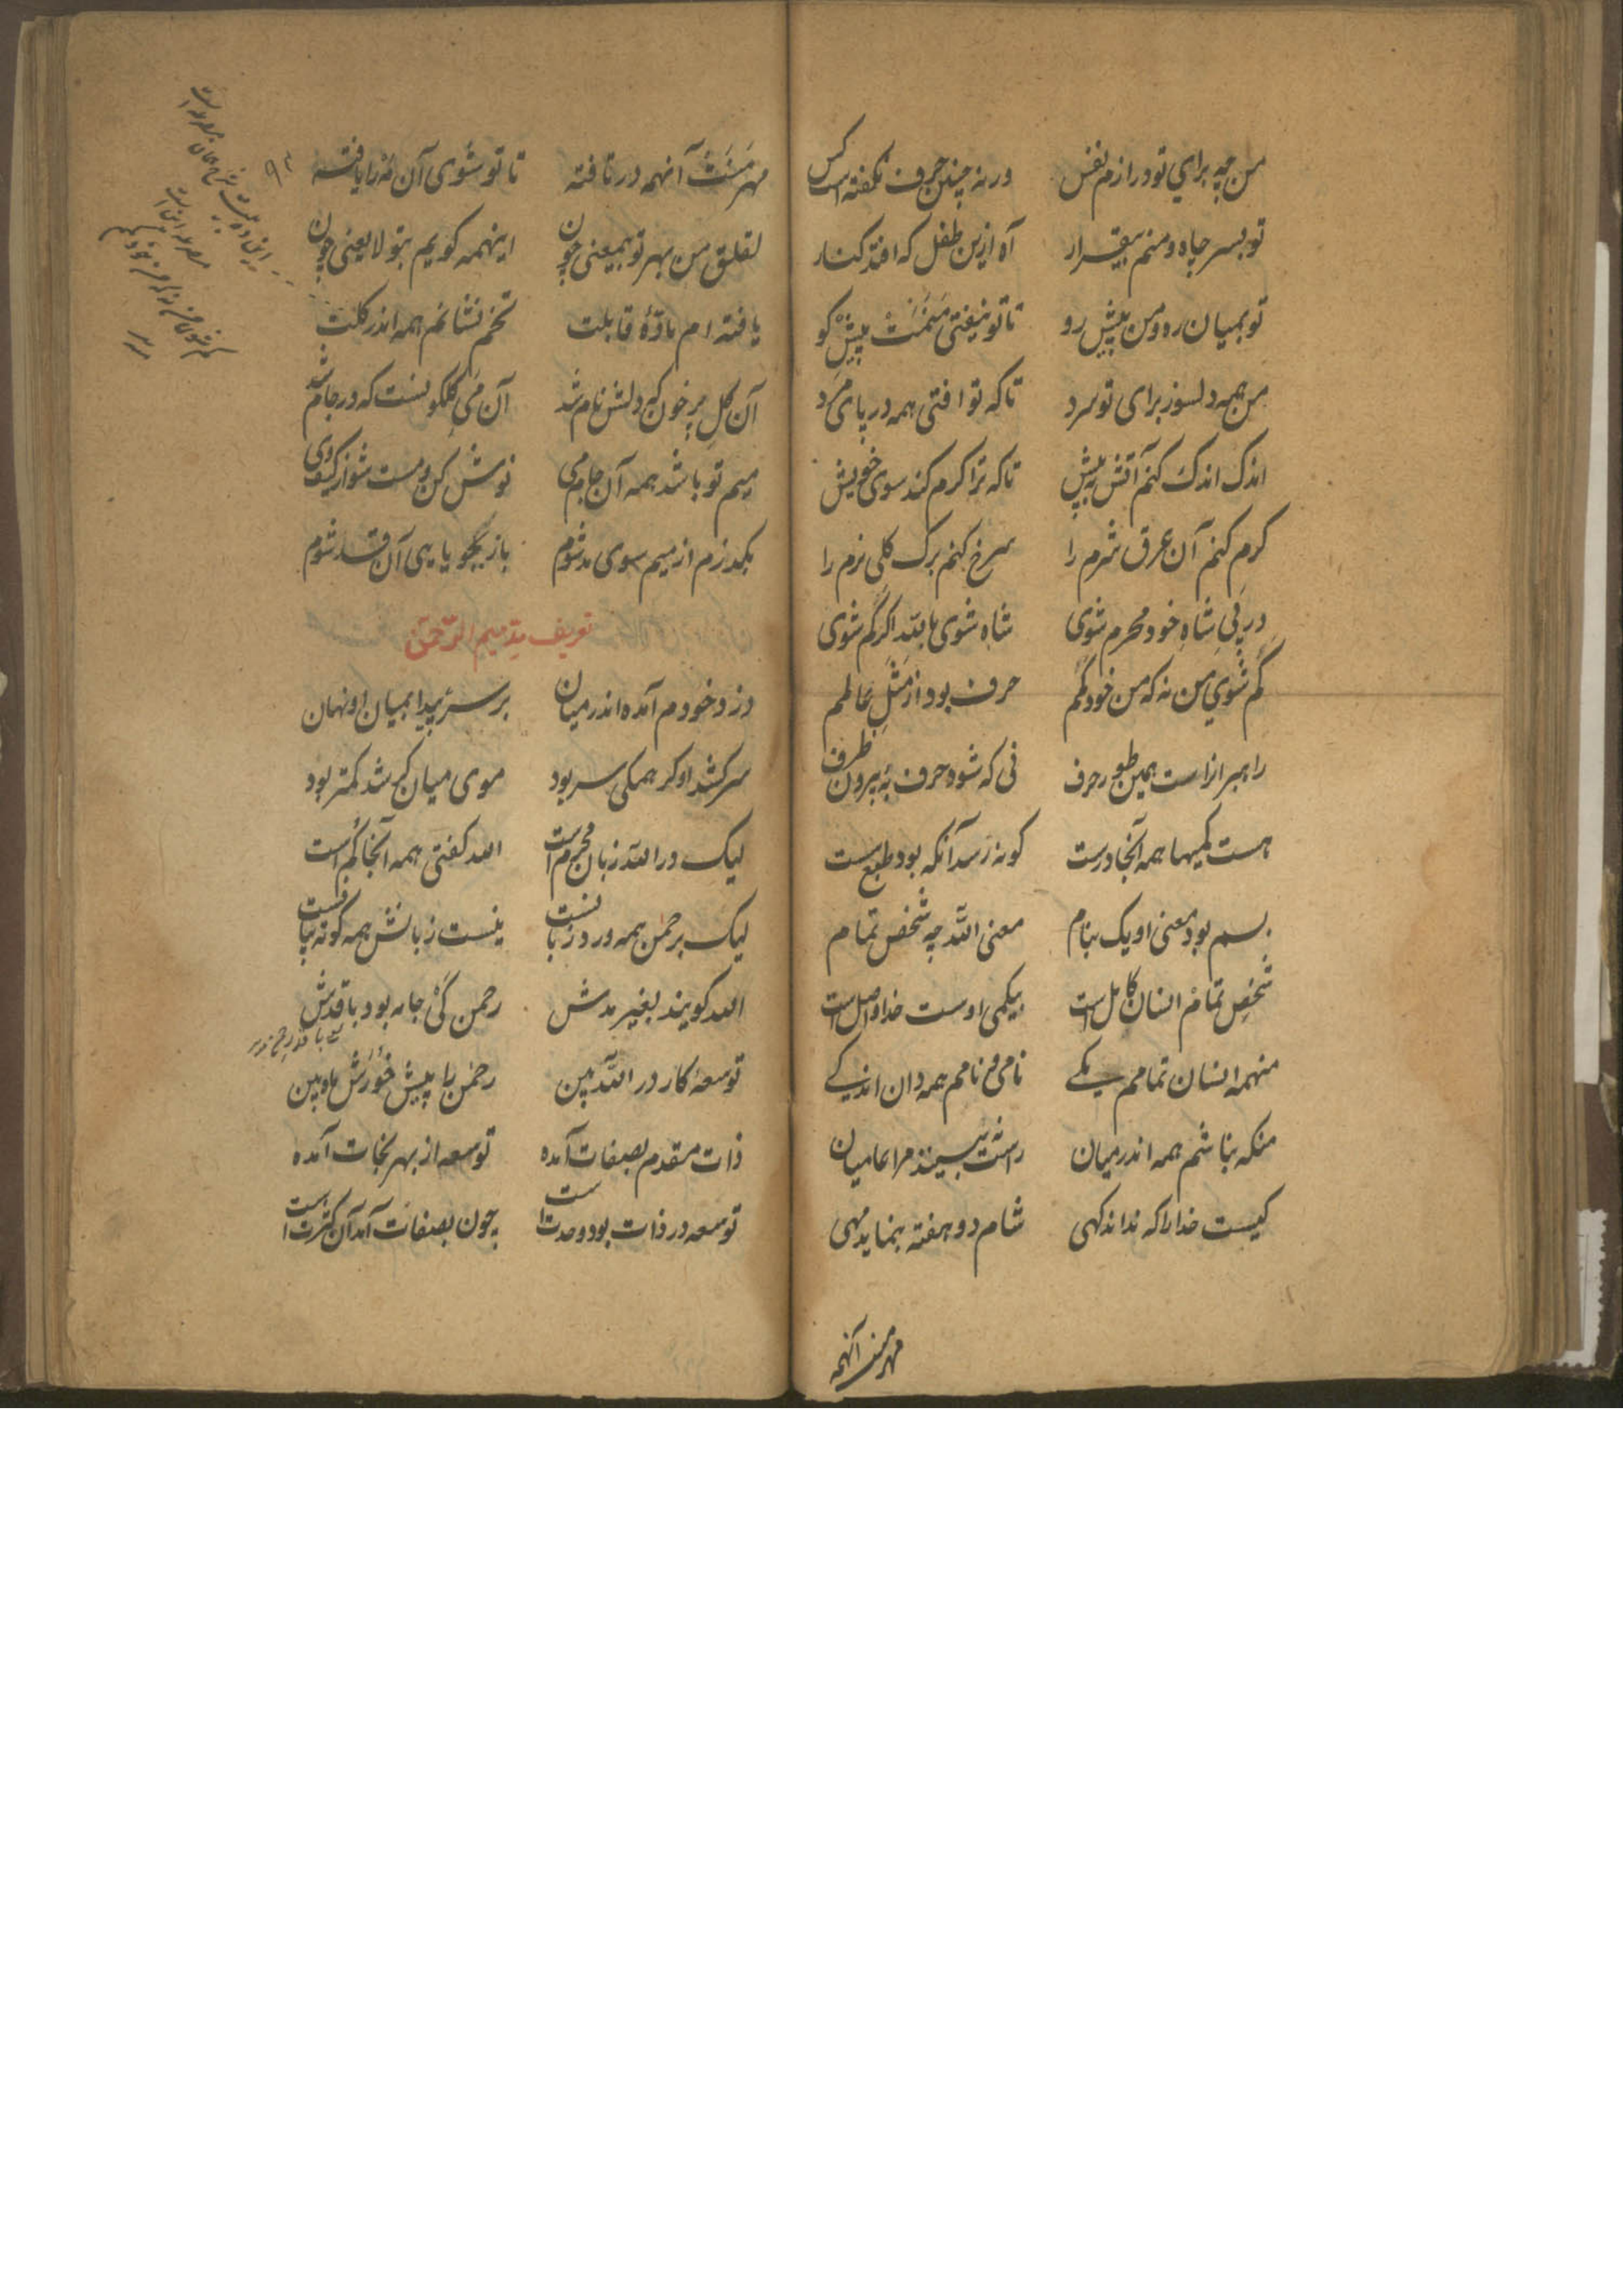 من چه برای تو درازم نفس ورنه چنین حرف نگفته است کس
تو بسر چاه و منم بیقرار آه ازین طفل که افتد کنار
تو بمیان ره و من پیش رو تا تو نیفتی منمت پیش گو
من همه دلسوز برای تو سرد تا که تو افتی همه در پای مرد
اندک اندک کنم آتش به پیش تا که ترا گرم کند سوی خویش
گرم کنم آن عرق شرم را سرخ کنم برگ گلی نرم را
در پی شاه خود محرم شوی شاه شوی بالله اگر گم شوی
گم شوی من نه که من خود گم حرف بود از مثل عالم
راهبر از است همین طور حرف نی که شود حرف به بیرون ظرف
هست کمیها همه آنجا درست گونه رسد آنکه بود طبع سست
بسم بود معنی او یک بنام معنی الله چه شخص تمام
شخص تمام انسان کامل است بیکمی اوست خدا واصل است
منهمه انسان تمامم یکی نامی و نامم همه دان اندکی
منکه بناشم همه اندر میان راست نه بینند مرا عامیان
کیست خدا را که نداند کهی شام دو هفته بنماید مهی
مهر منت آنهمه
۹۳
مهر منت آنهمه در تافته تا تو شوی آن مه را یافته
لقلق من بهر تو بمعنی چون اینهمه گویم بتو لایعنی چون
یافته ام مادهٔ قابلت تخم نشانم همه اندر گلت
آن گل پر خون که دلش نام شد آن می گلگونست که در جام شد
میم تو باشد همه آن جام می نوش کن و مست شو از کیف وی
بگذرم از میم سوی مد شوم باز بگو یا پی آن قد شوم
تعریف مد میم الرحمن
دزد خودم آمده اندر میان بر سر پیدا بمیان او نهان
سر کشد او گر همگی سر بود موی میان کج شد کمتر بود
لیک در الله زبان محرم است الله گفتی همه آنجا گم است
لیک برحمن همه ورد زبانست نیست زبانش همه گونه بپاست
الله گویند بغیر مدش رحمن گی جامه بود با قدش
توسعهٔ کار در الله ببین رحمن را پیش خورش ماه بین
ذات مقدم بصفات آمده توسعه از بهر نجات آمده
توسعه در ذات بود وحدتست چون بصفات آمد آن کثرتست